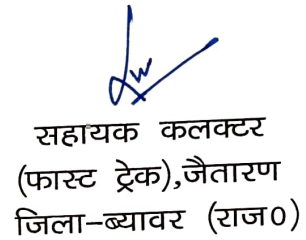 सहायक कलक्टर
(फास्ट ट्रेक),जैतारण
जिला–ब्यावर (राज0)